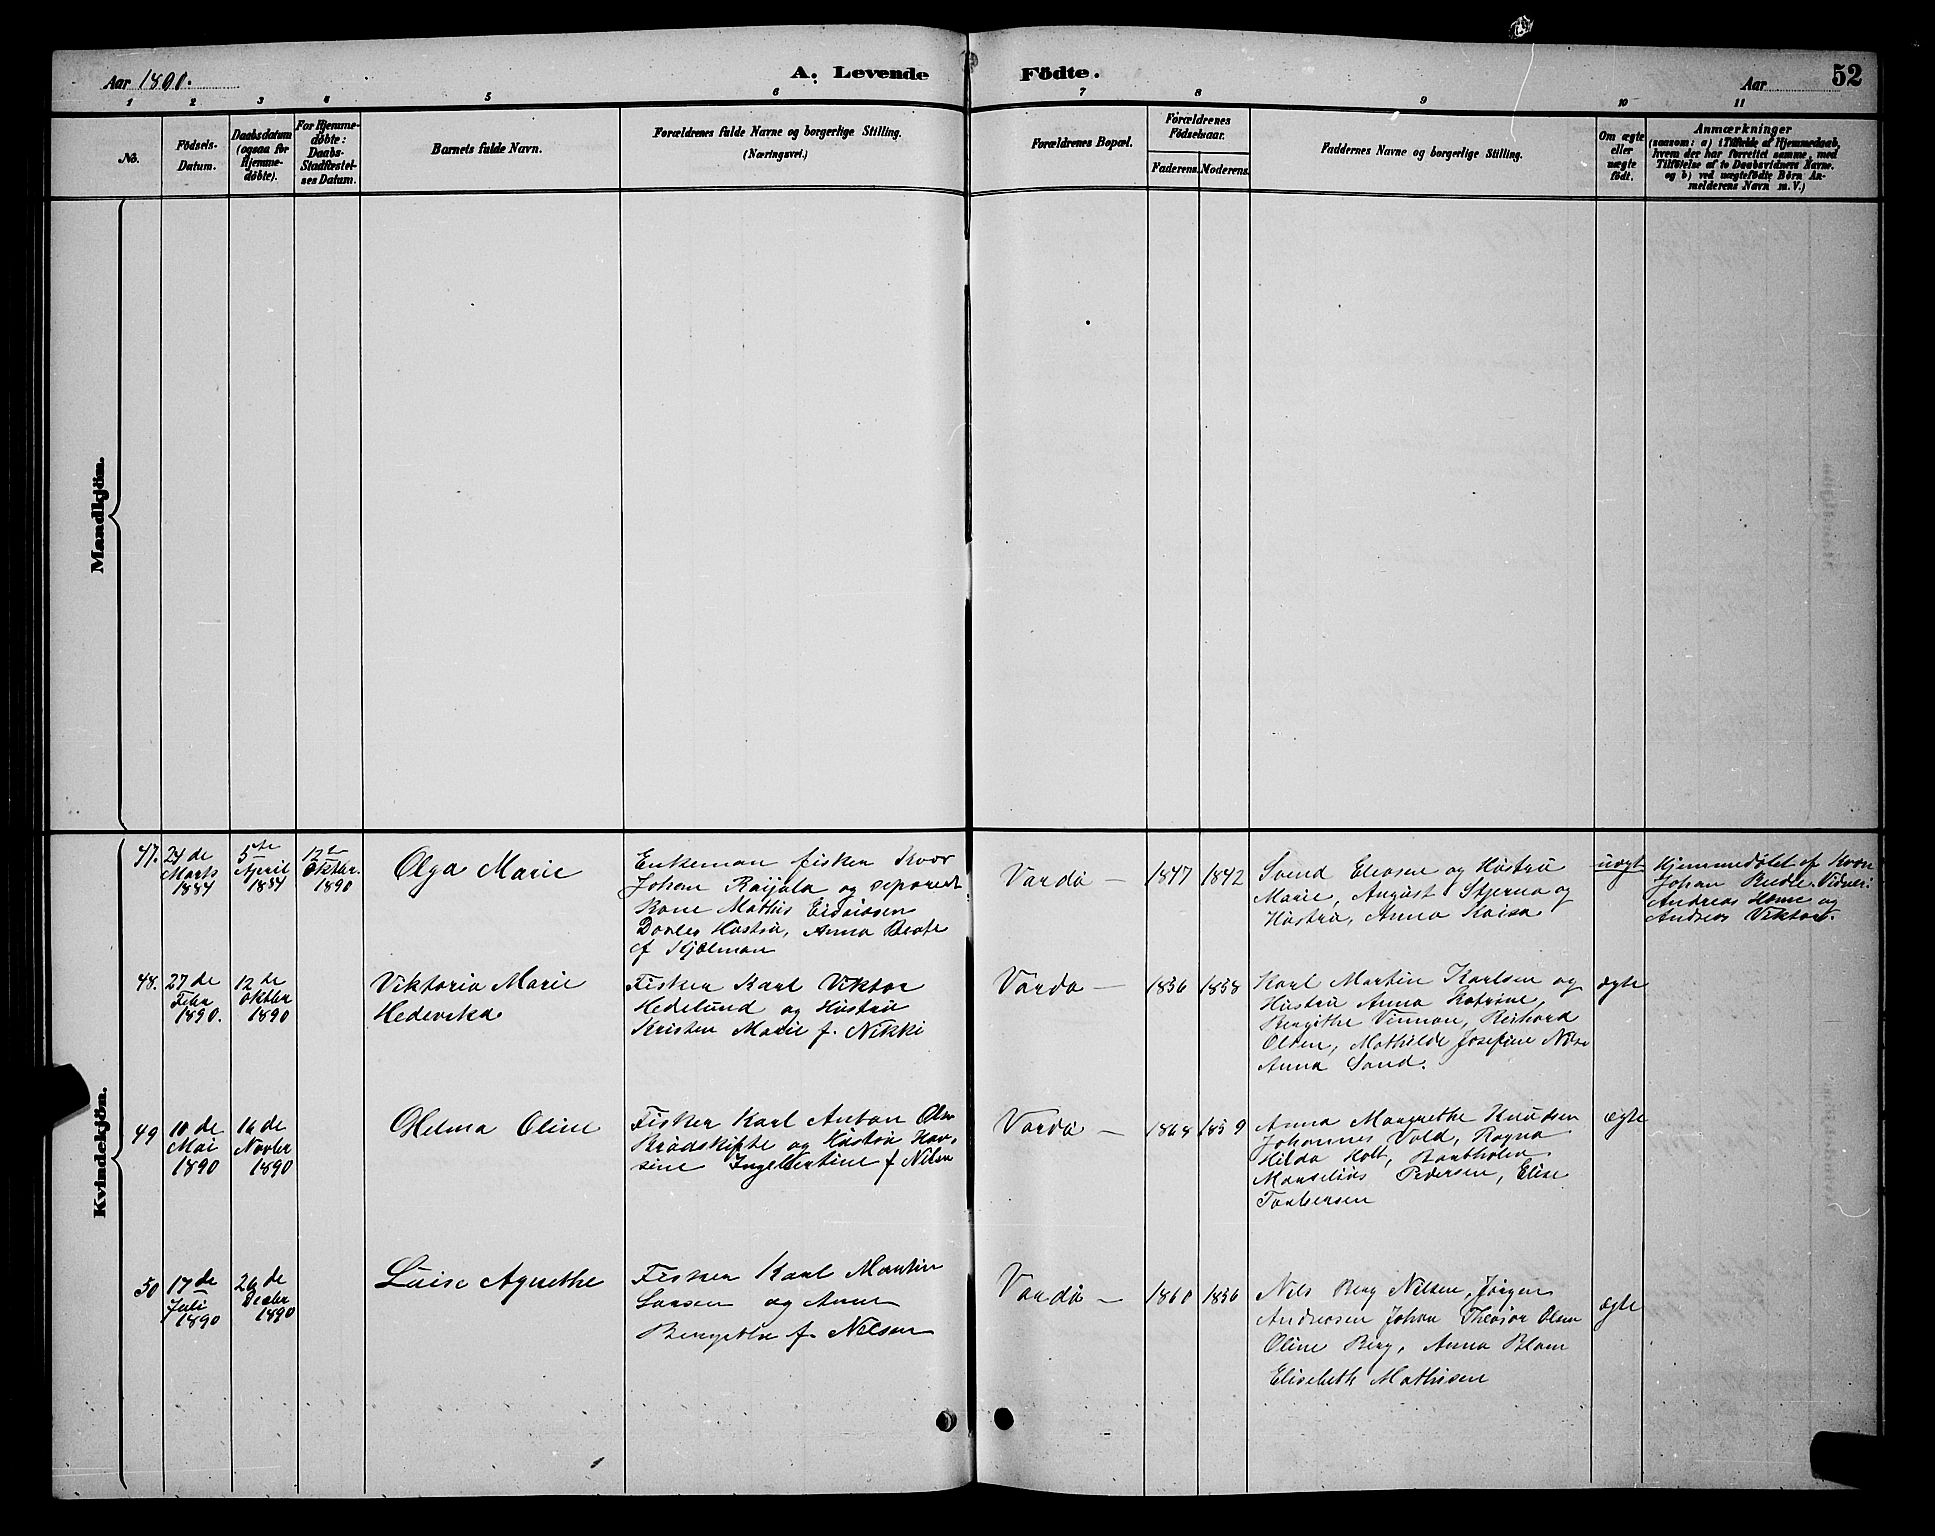 Aar 1890.
A. Levende Födte.
Aar
52
1 2 3 4 5 6 7 8 9 10 11
No.
Födsels-
Datum.
Daabsdatum
(ogsaa for
Hjemme-
döbte).
For Hjemme-
döbte:
Daabs-
Stadfæstel-
ses Datum.
Barnets fulde Navn.
Forældrenes fulde Navne og borgerlige Stilling.
(Næringsvei.)
Forældrenes Bopæl.
Forældrenes
Födselsaar.
Faderens. Moderens.
Faddernes Navne og borgerlige Stilling.
Om ægte
eller
uægte
födt.
Anmærkninger
(saasom: a) i Tilfælde af Hjemmedaab,
hvem der har forrettet samme, med
Tilföielse af to Daabsvidners Navne.
og b) ved uægtefödte Börn An-
melderens Navn m. V.)
Mandkjön.
Kvindekjön.
47.
24 de
Marts
1884
5te
April
1884
12te
Oktbr.
1890
Olga Marie
Enkeman fisker Kvæn
Johan Raijala og separert
Kone Mathis
Hustru, Anna Beate
f Kjelman
Vardø —
1847
1842
Svend Eliasen og Hustru
Marie, August Stjerna og
Hustru, Anna Kaisa
uægt
Hjemmedøbt af Kvæn
Johan Vidner:
Andreas og
Andreas Viktor.
48.
27 de
Febr
1890.
12 de
Oktbr
1890
Viktoria Marie
Hedevika
Fisker Karl Viktor
Hedelund og Hustru
Kristen Marie f. Nikki
Vardø —
1856
1858
Karl Martin Karlsen og
Hustru Anna Katrine,
Bergithe Vinnan, Rikhard
Olsen, Mathilde Josefine Nils
Anna Sand.
ægte
49
10 de
Mai
1890
16 de
Novbr
1890
Helma Oline
Fisker Karl Anton Olsen
Brødskifte og Hustru Han-
sine Ingebertine f Nilsen
Vardø —
1864
1859
Anna Margrethe Knudsen
Johannes Vold, Ragna
Hilda Holt, Bartholen
Marselius Pedersen, Elise
Torbersen
ægte
50
17 de
Juli
1890
26 de
Decbr
1890
Luise Agnethe
Fisker Karl Martin
Larsen og Anne
Bergethe f. Nilsen
Vardø —
1860
1856
Nils Berg Nilsen, Jørgen
Andreasen Johan Theodor Olsen
Oline Berg, Anna Blom
Elisebeth Mathisen
ægte